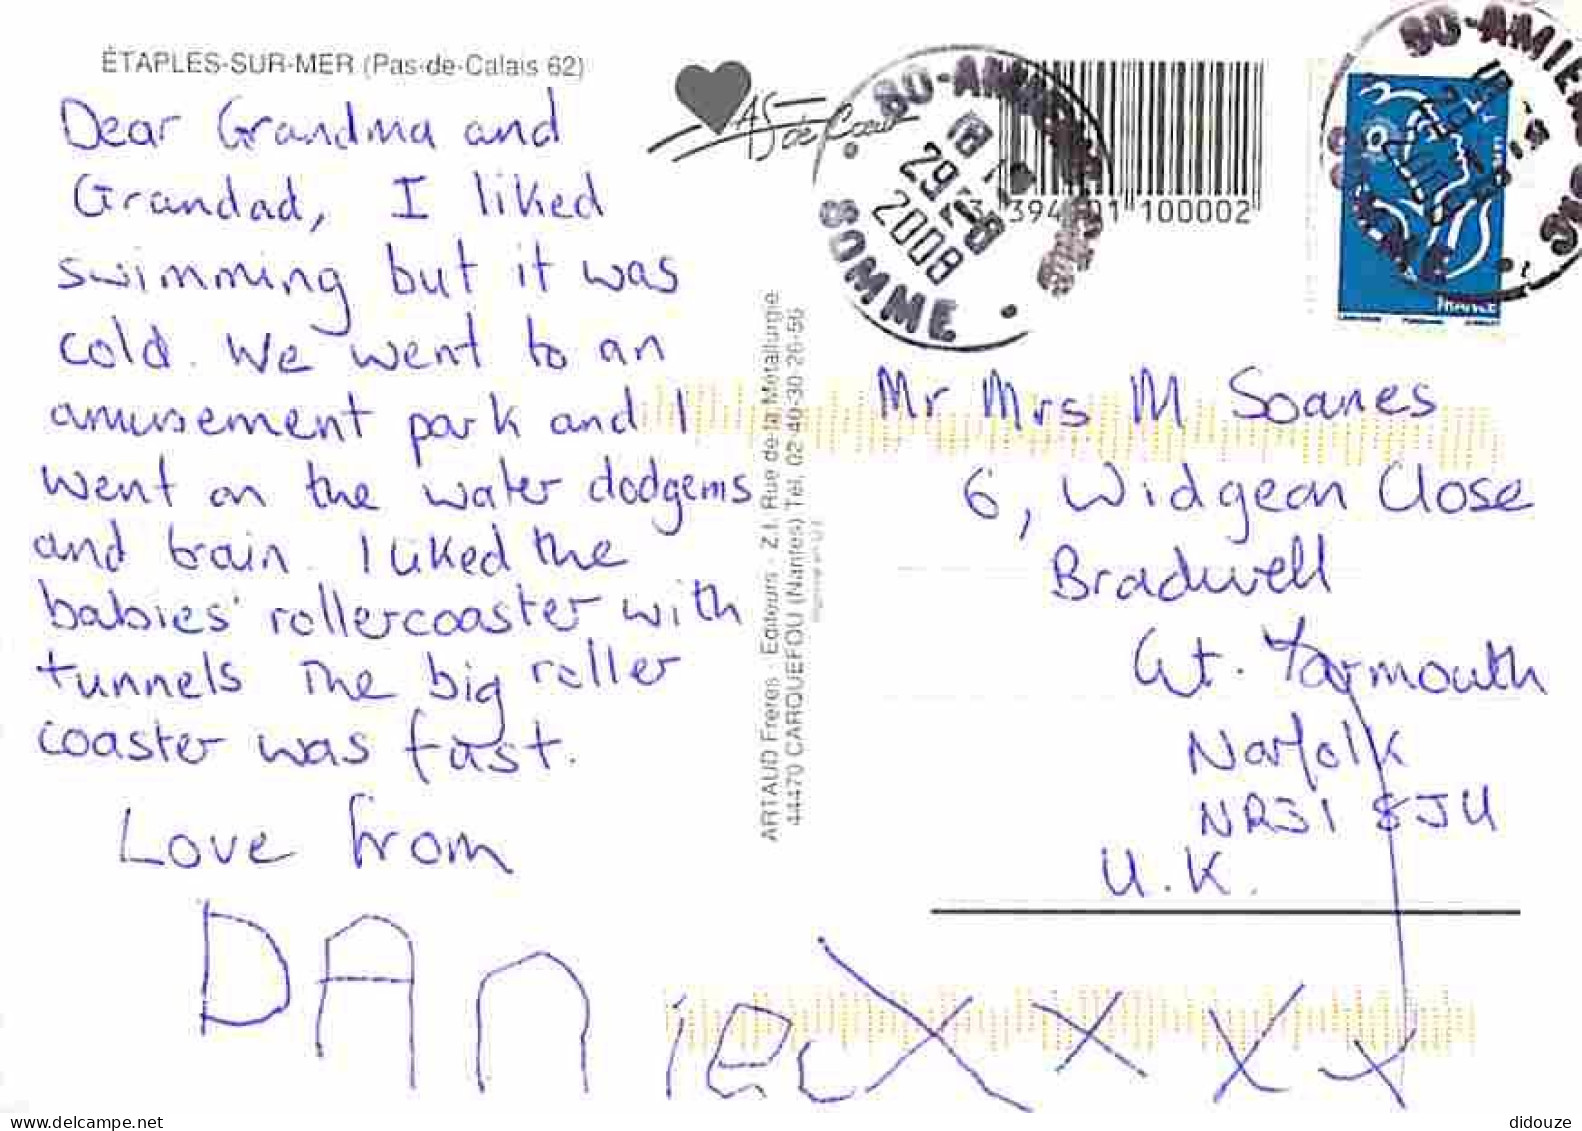 ÉTAPLES-SUR-MER (Pas-de-Calais 62)
Dear Grandma and
Grandad, I liked
swimming but it was
cold. We went to an
amusement park and I
went on the water dodgems
and train. I liked the
babies' rollercoaster with
tunnels The big roller
coaster was fast.
Love from
DAniel X X X X
As de Cœur
SOMME
29
2008
100002
ARTAUD Frères - Editeurs - Z.I. Rue de la Métallurgie
44470 CARQUEFOU (Nantes) Tél. 02-40-30-26-56
France
Mr Mrs M Soanes
6, Widgeon Close
Bradwell
Gt. Yarmouth
Norfolk
NR31 8JU
U.K.
didouze